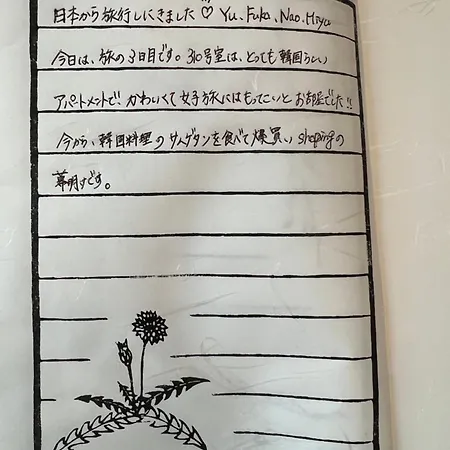 日本から旅行しにきました♡ Yu、Fuka、Nao、Miyu
今日は、旅の3日目です。310号室は、とっても韓国らしい
アパートメットで!かわいくて女子旅にはもってこいとお部屋でした!!
今から、韓国料理のサムゲタンを食べて爆買い shopingの
幕明けです。